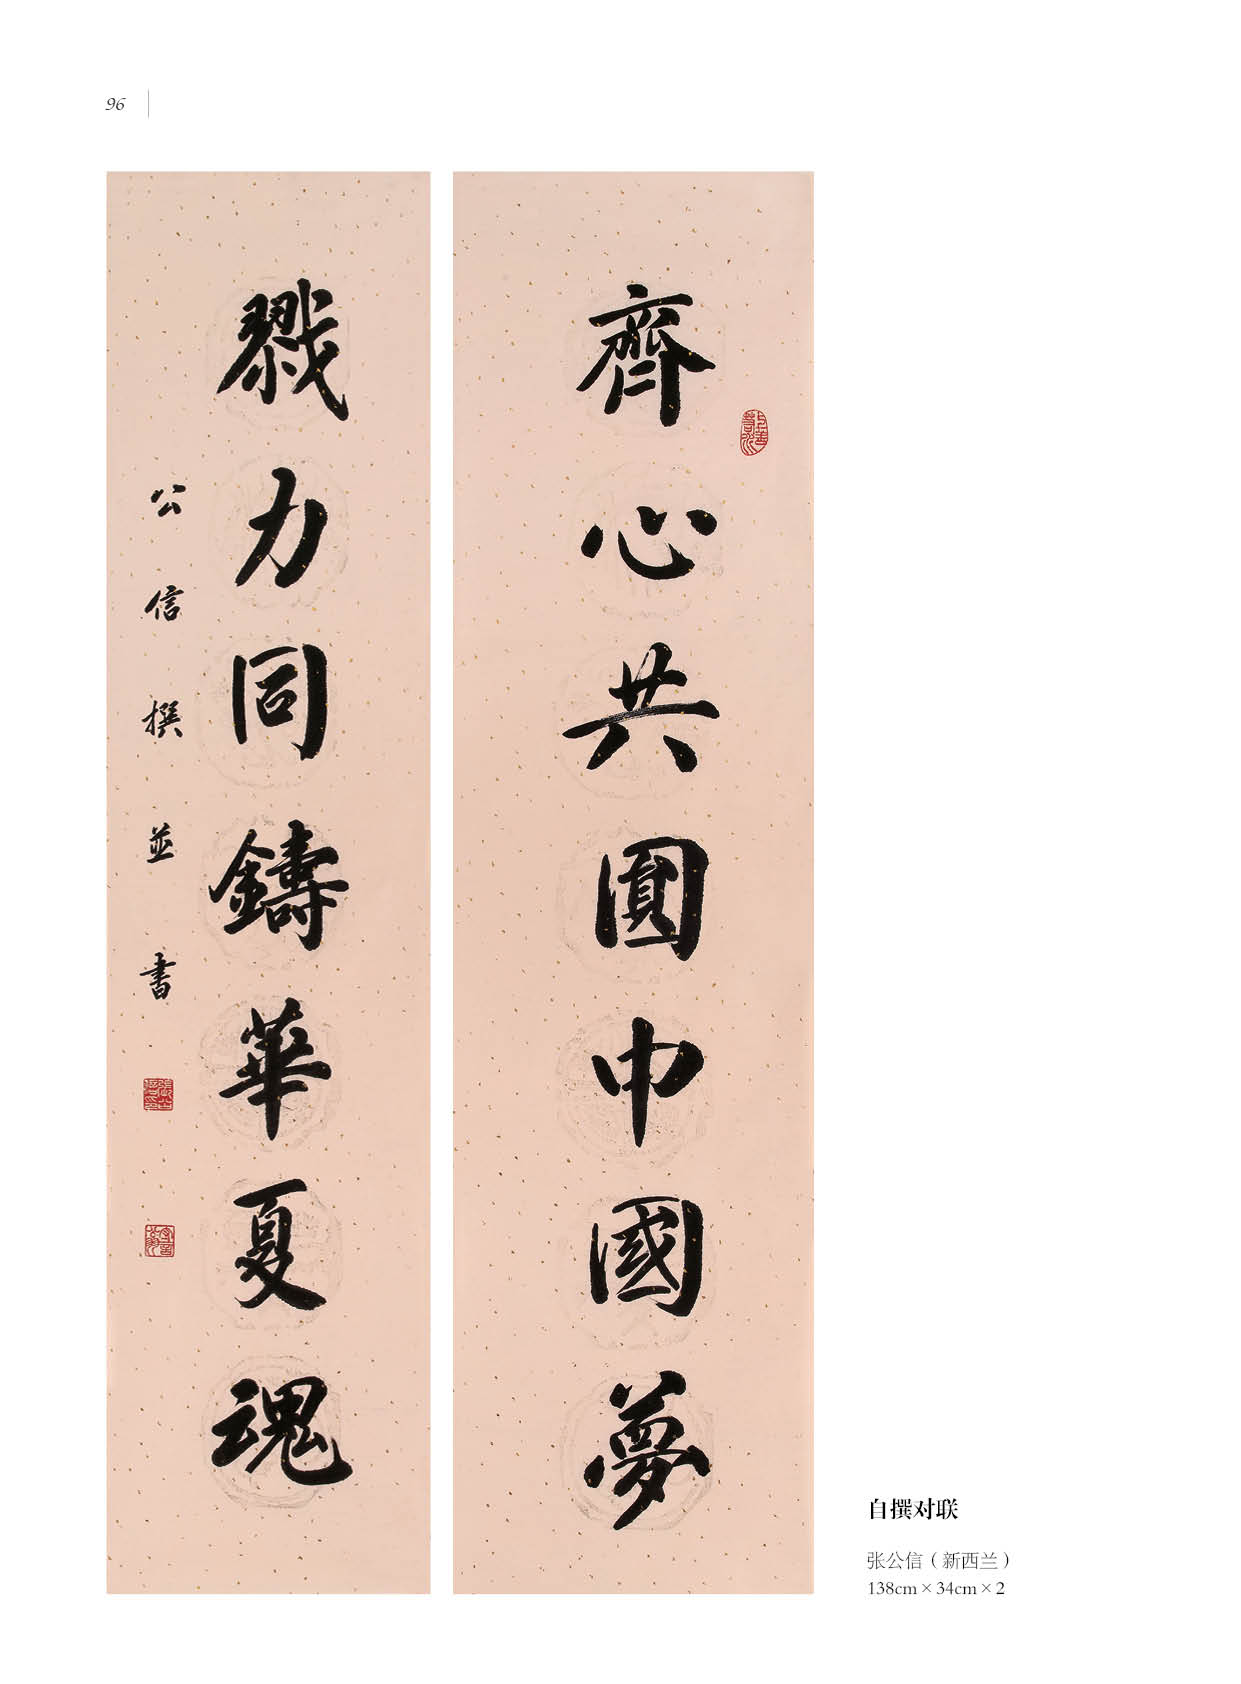 96
齊心共圓中國夢
戮力同鑄華夏魂
公信撰並書
自撰对联
张公信（新西兰）
138cm×34cm×2